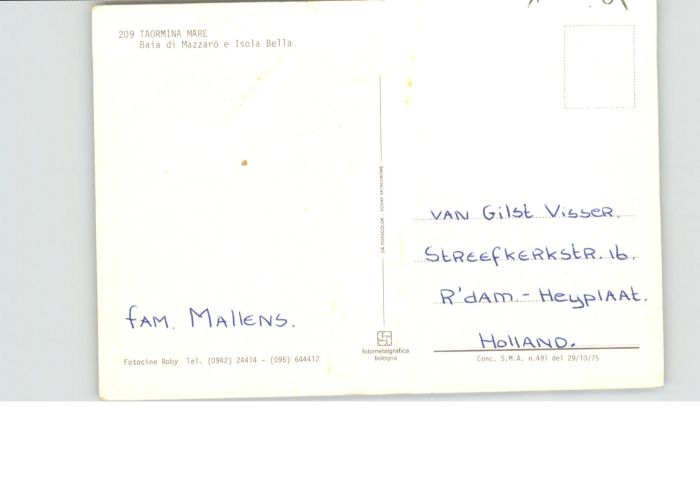 209 TAORMINA MARE
Baia di Mazzarò e Isola Bella
fam. Mallens.
Fotocine Roby Tel. (0942) 24414 - (095) 644412
DA FOTOCOLOR KODAK EKTACHROME
fotometalgrafica
bologna
VAN Gilst Visser.
Streefkerkstr. 16.
R'dam. - Heyplaat.
Holland.
Conc. S.M.A. n.491 del 29/10/75